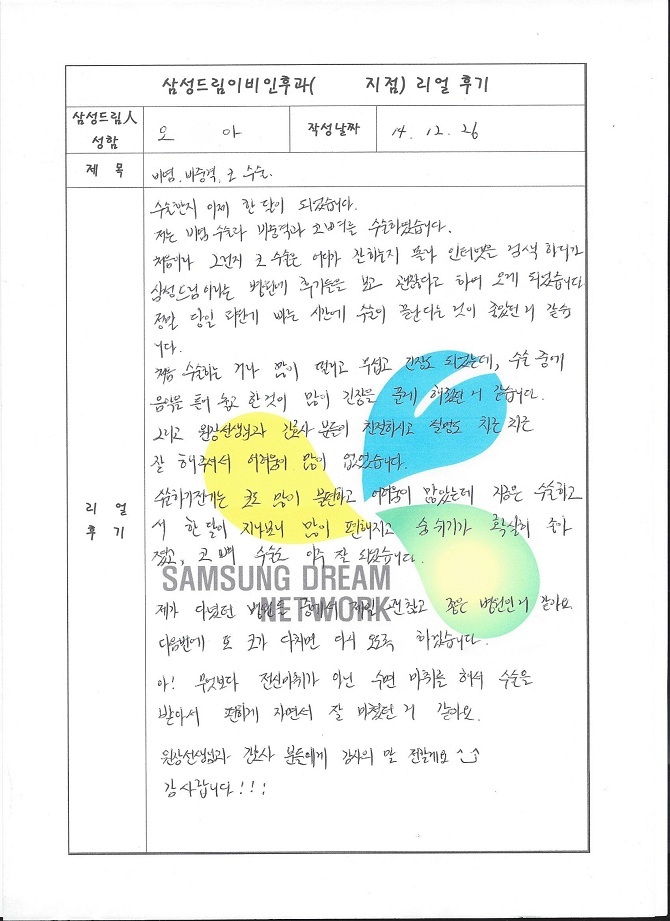 삼성드림이비인후과( 지점) 리얼 후기
삼성드림人
성함
오 아
작성날짜
14. 12. 26
제 목
비염, 비중격, 코 수술.
리 얼
후 기
수술한지 이제 한 달이 되었습니다.
저는 비염 수술과 비중격과 코뼈를 수술하였습니다.
비염이나 그런지 코 수술은 어디가 잘하는지 인터넷을 검색 하다가
삼성드림이라는 병원에 후기들을 보고 괜찮다고 하여 오게 되었습니다
정말 당일 빠른 시간에 수술이 끝난다는 것이 좋았던 거 같습
니다.
처음 수술하는 거라 많이 떨리고 무섭고 긴장도 되었는데, 수술 중에
음악을 틀어 놓고 한 것이 많이 긴장을 풀게 해줬던 거 같습니다.
그리고 원장선생님과 간호사 분들이 친절하시고 설명도 차근 차근
잘 해주셔서 어려움이 많이 없었습니다.
수술하기전에는 코도 많이 불편하고 어려움이 많았는데 지금은 수술하고
서 한 달이 지나보니 많이 편해지고 숨 쉬기가 확실히 좋아
졌고, 코 뼈 수술도 아주 잘 되었습니다.
SAMSUNG DREAM
NETWORK
제가 다녔던 병원들 중에서 제일 괜찮고 좋은 병원인거 같아요
다음번에 또 코가 다치면 다시 오도록 하겠습니다.
아! 무엇보다 전신마취가 아닌 수면 마취를 해서 수술을
받아서 편하게 자면서 잘 마쳤던 거 같아요.
원장선생님과 간호사 분들에게 감사의 말 전할게요 ^_^
감사합니다!!!